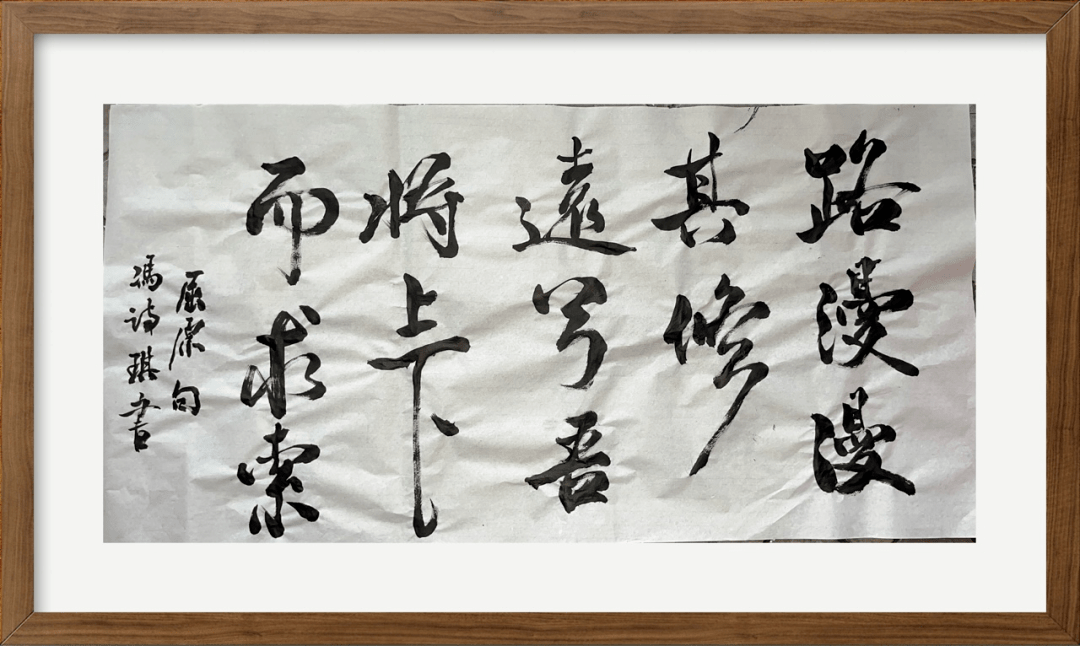 路漫漫
其修
遠兮吾
將上下
而求索
屈原句
馮詩琪書